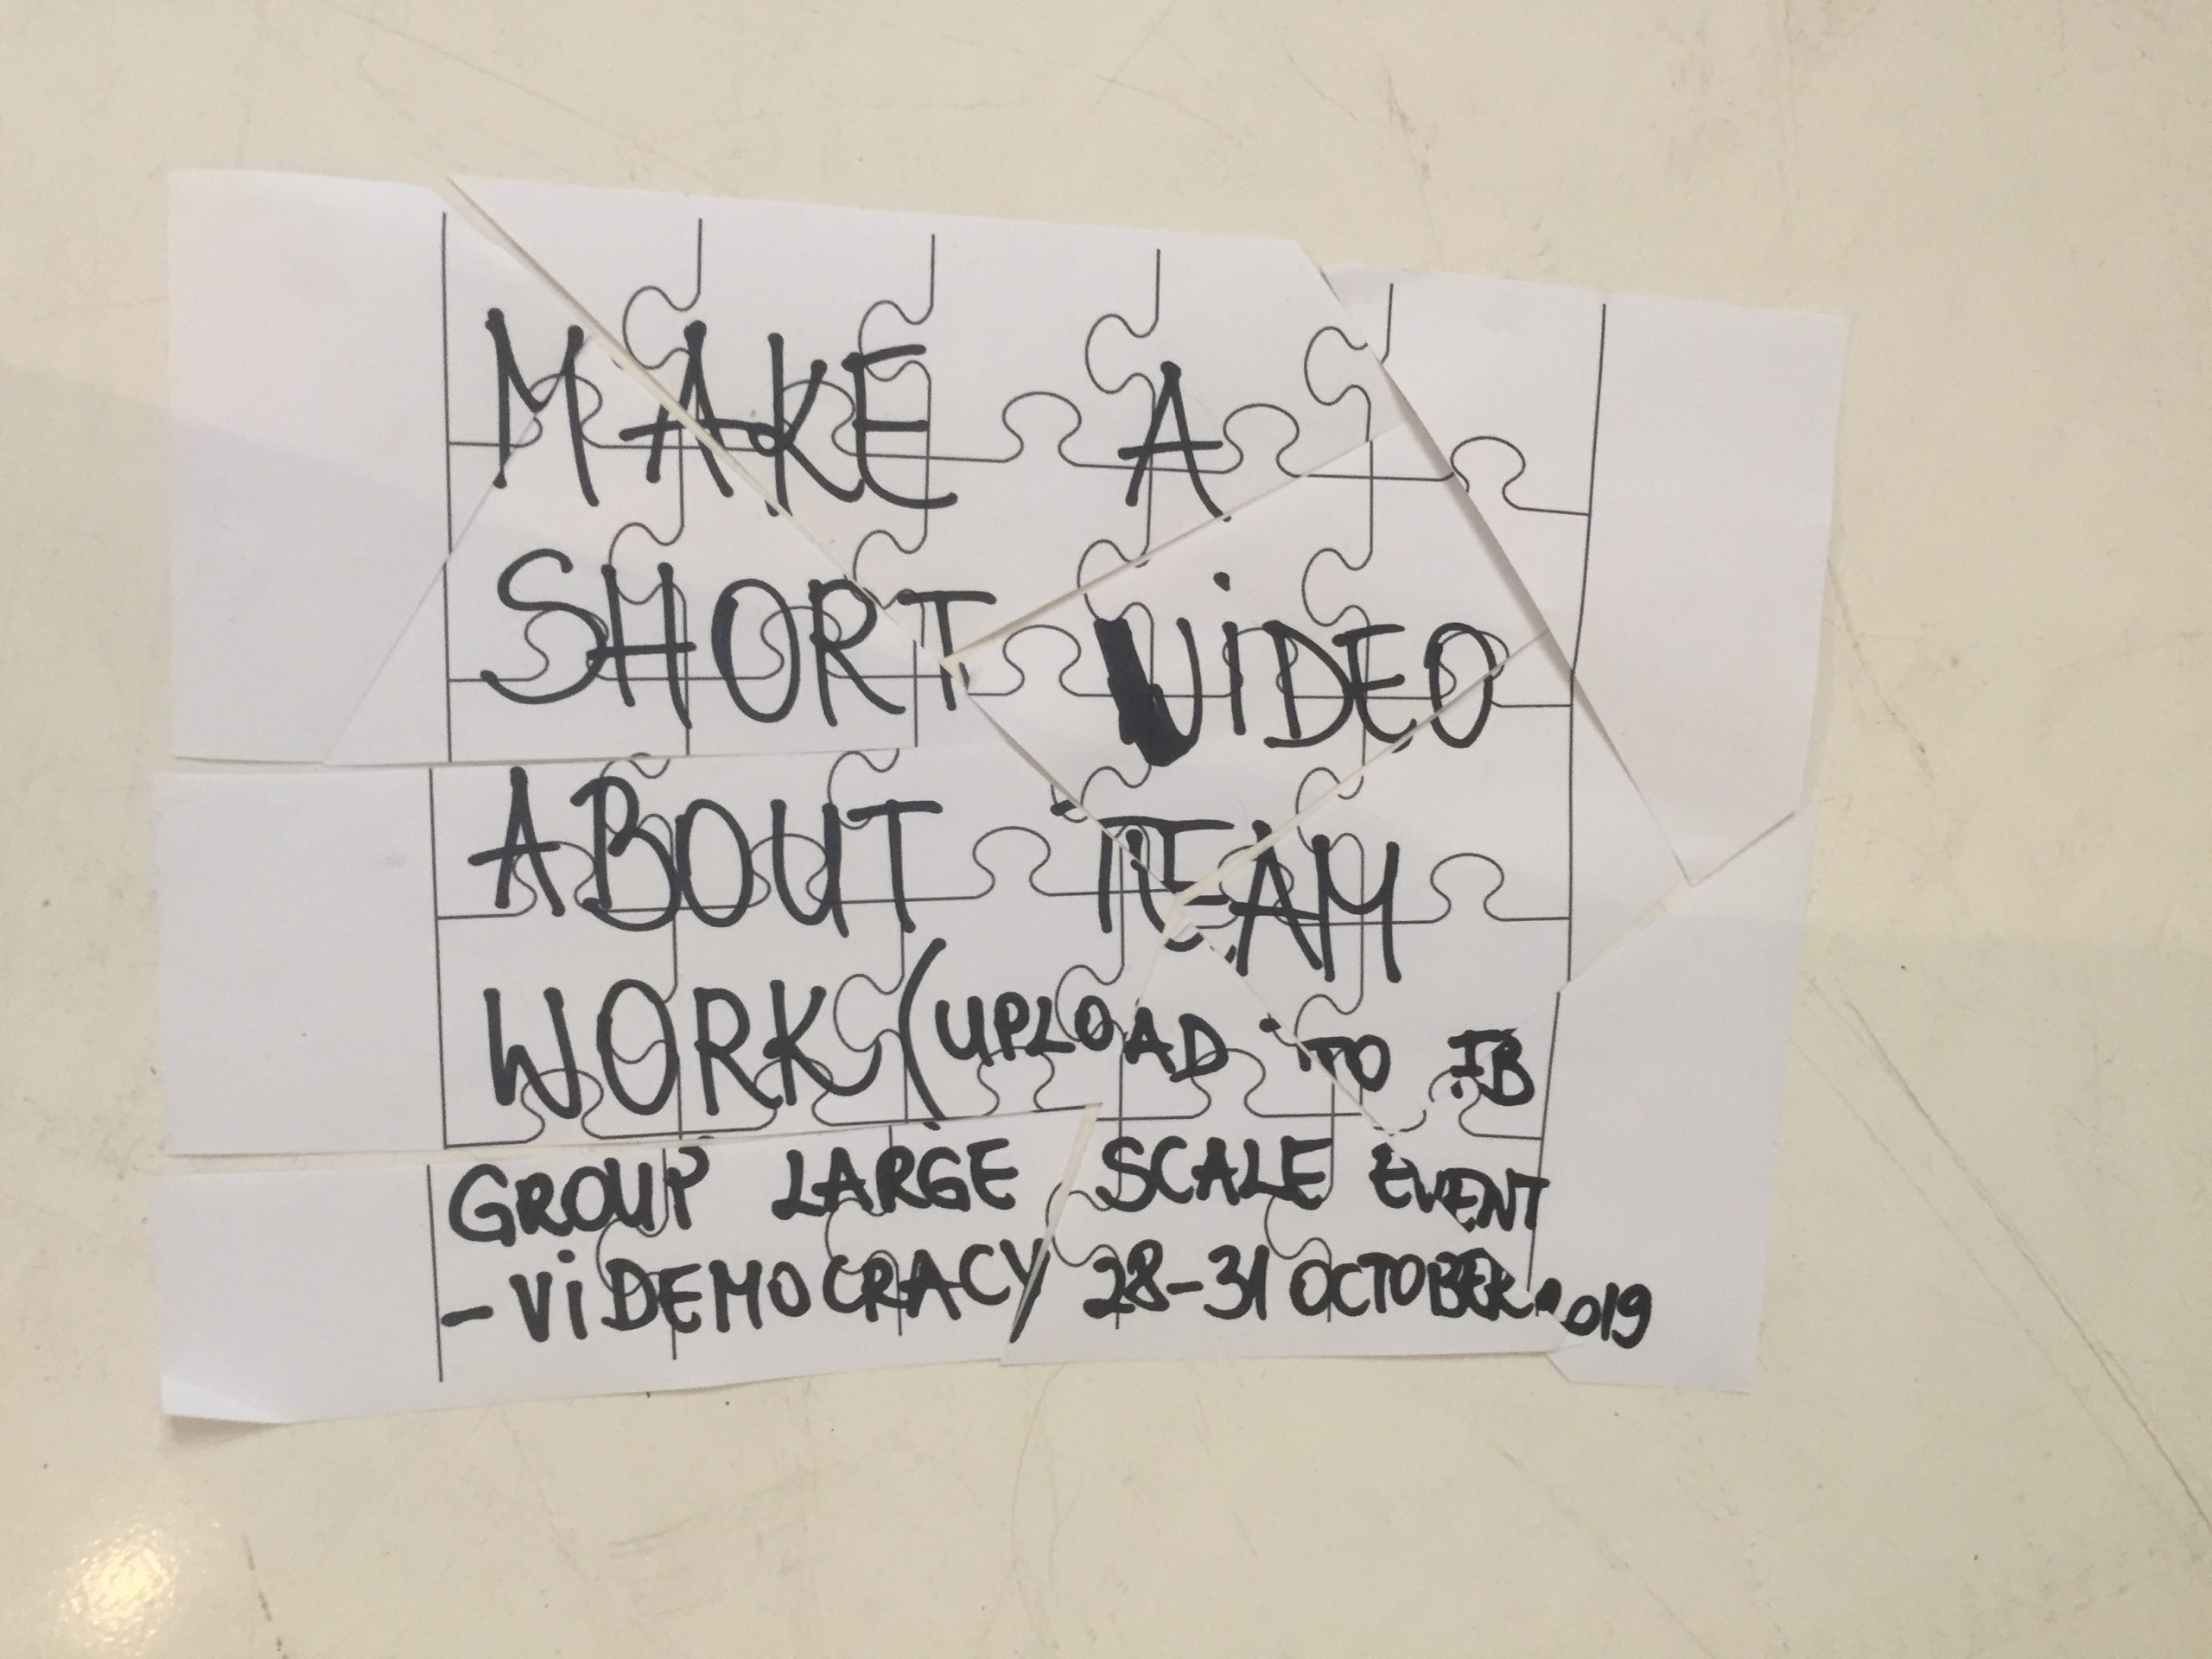 MAKE A
SHORT ViDEO
ABOUT TEAM
WORK (UPLOAD TO FB
GROUP LARGE SCALE EVENT
- ViDEMOCRACY 28-31 OCTOBER 2019